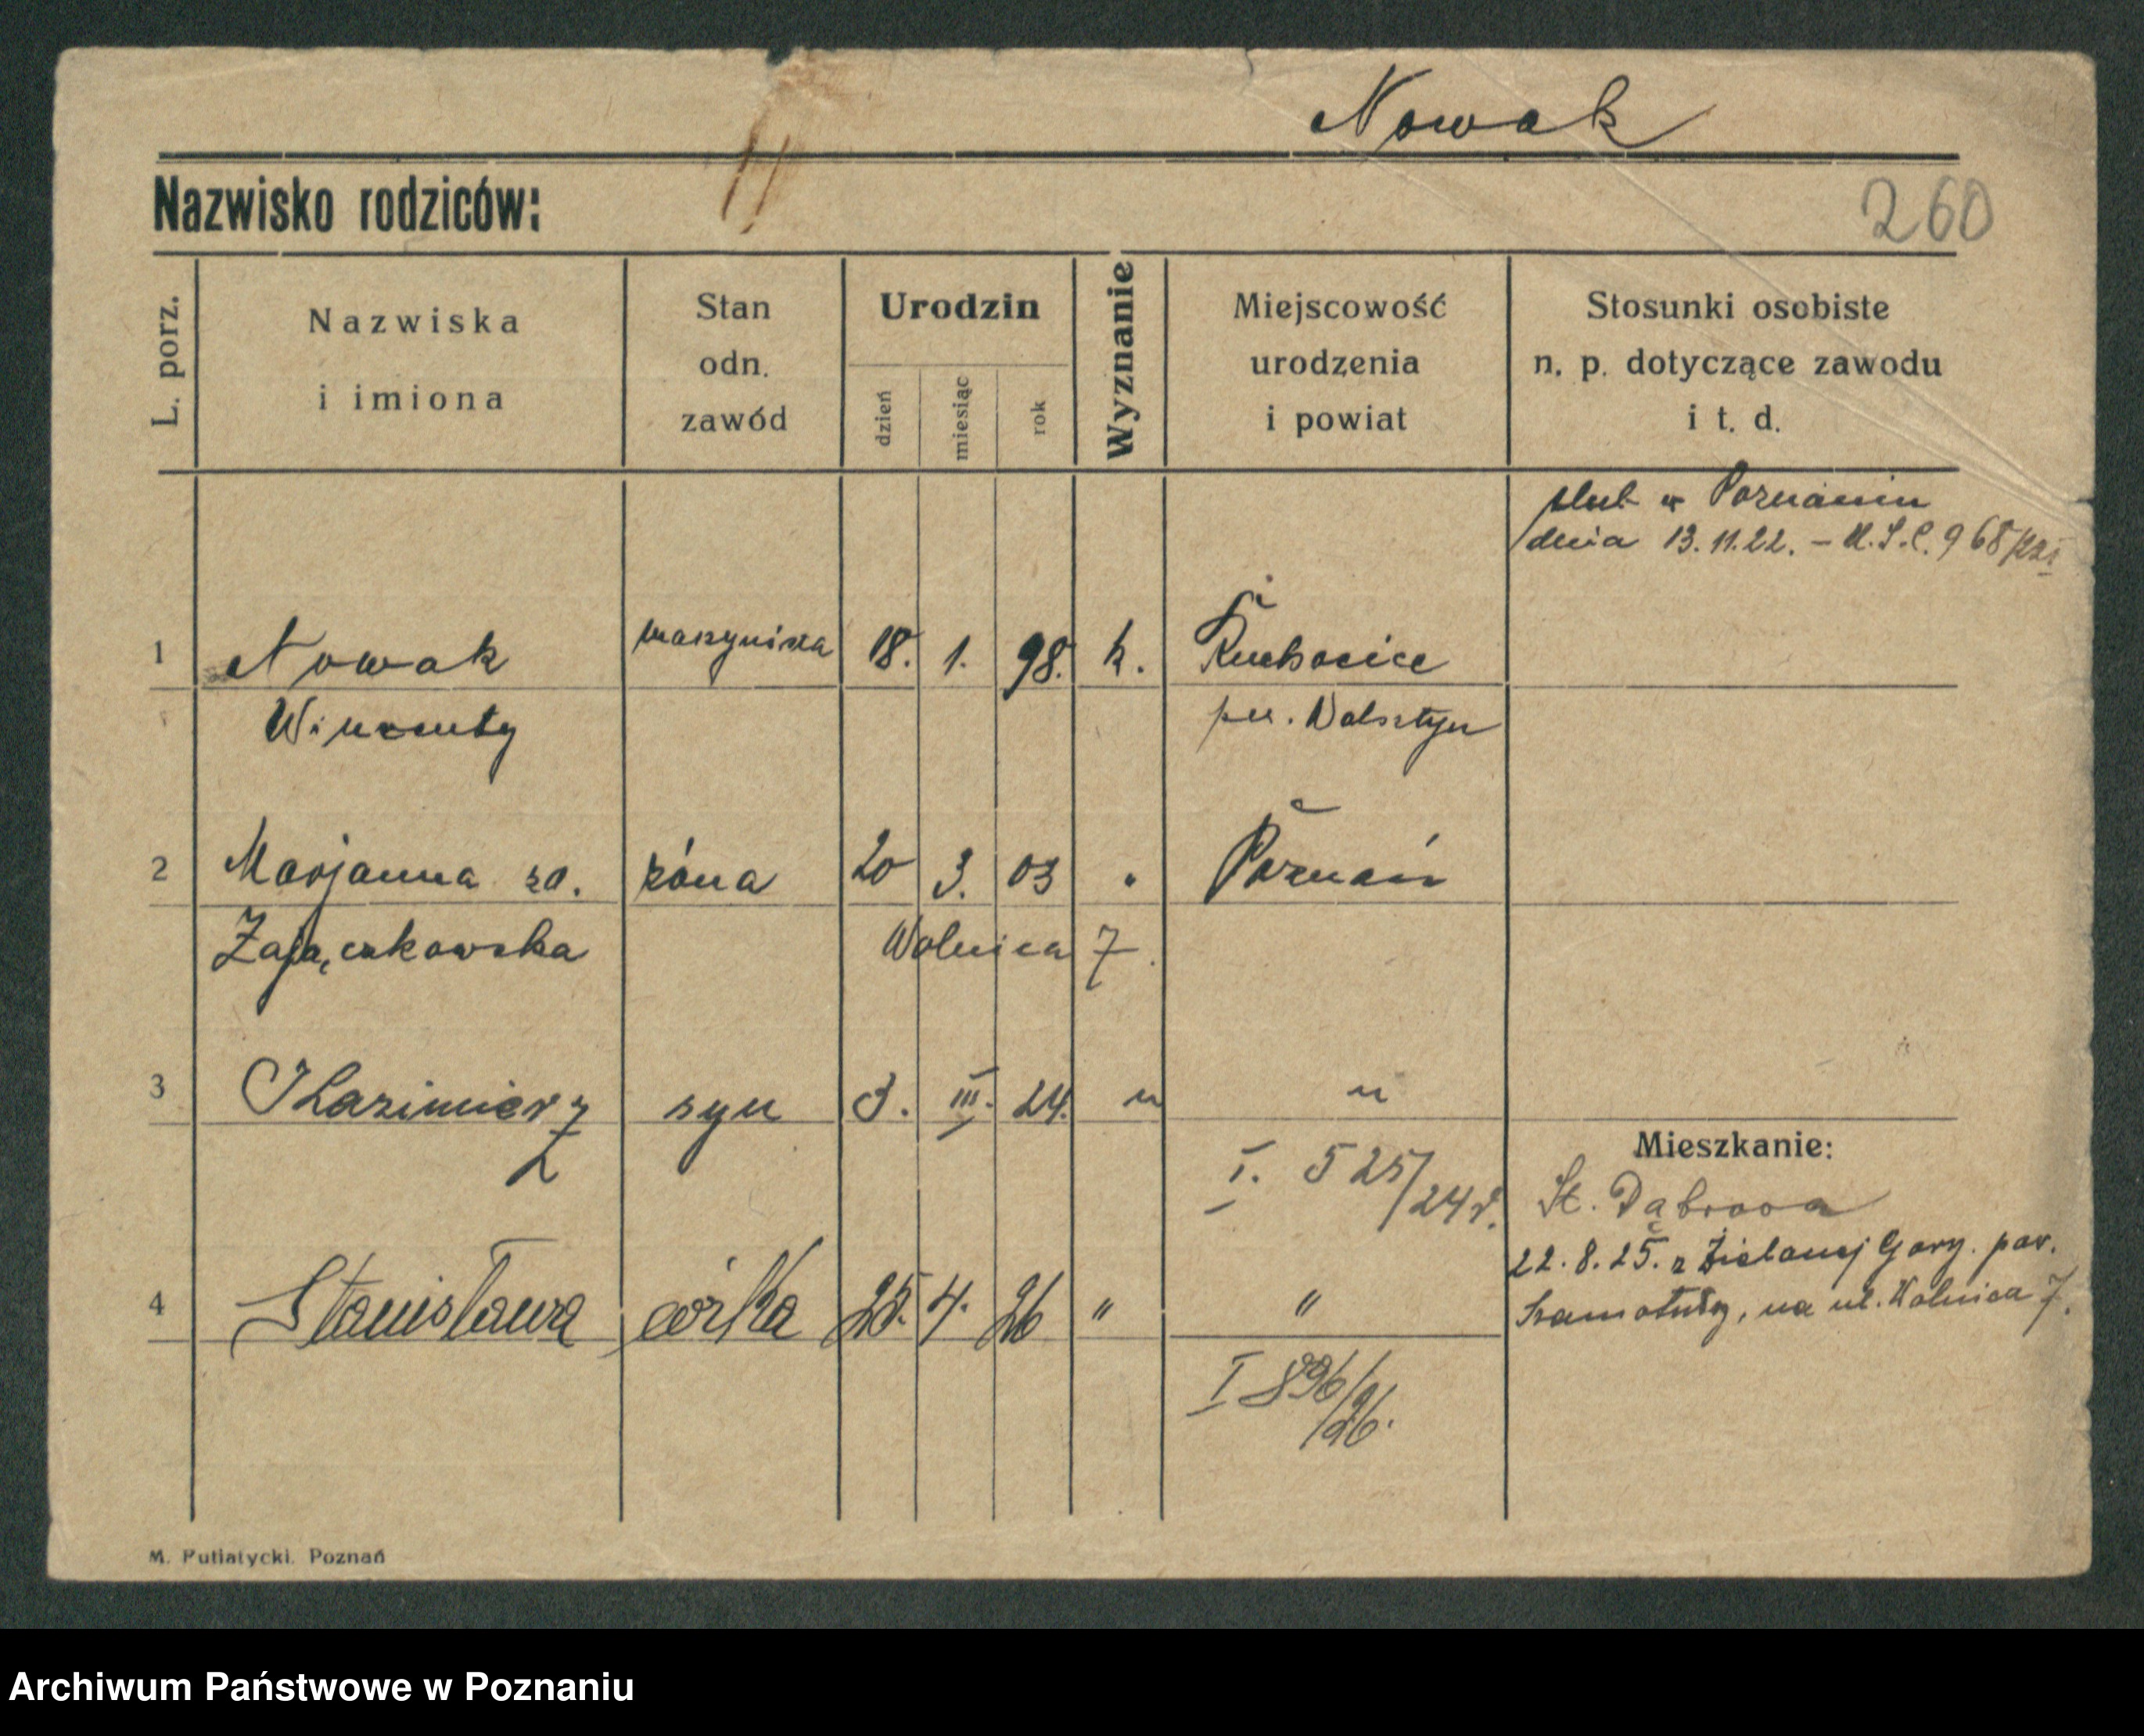 Nowak
Nazwisko rodziców:
260
L. porz.
Nazwiska
i imiona
Stan
odn.
zawód
Urodzin
dzień
miesiąc
rok
Wyznanie
Miejscowość
urodzenia
i powiat
Stosunki osobiste
n. p. dotyczące zawodu
i t. d.
ślub w Poznaniu
dnia 13.11.22. – U.S.C. 968/22
1 Nowak maszynista 18. 1. 98. k. Ruchocice
Wincenty pw. Wolsztyn
2 Marjanna za. żóna 20 3. 03 " Poznań
Zają,czkowska Wolnica 7.
3 Kazimierz syn 3. III. 24. " "
Mieszkanie:
I. 525/24r.
St. Dąbrowa
22.8.25. z Zielonej Góry. pow.
Szamotuły, na ul. Wolnica 7.
4 Stanisława córka 25. 4. 26 " "
I 896/26.
M. Putiatycki. Poznań
Archiwum Państwowe w Poznaniu